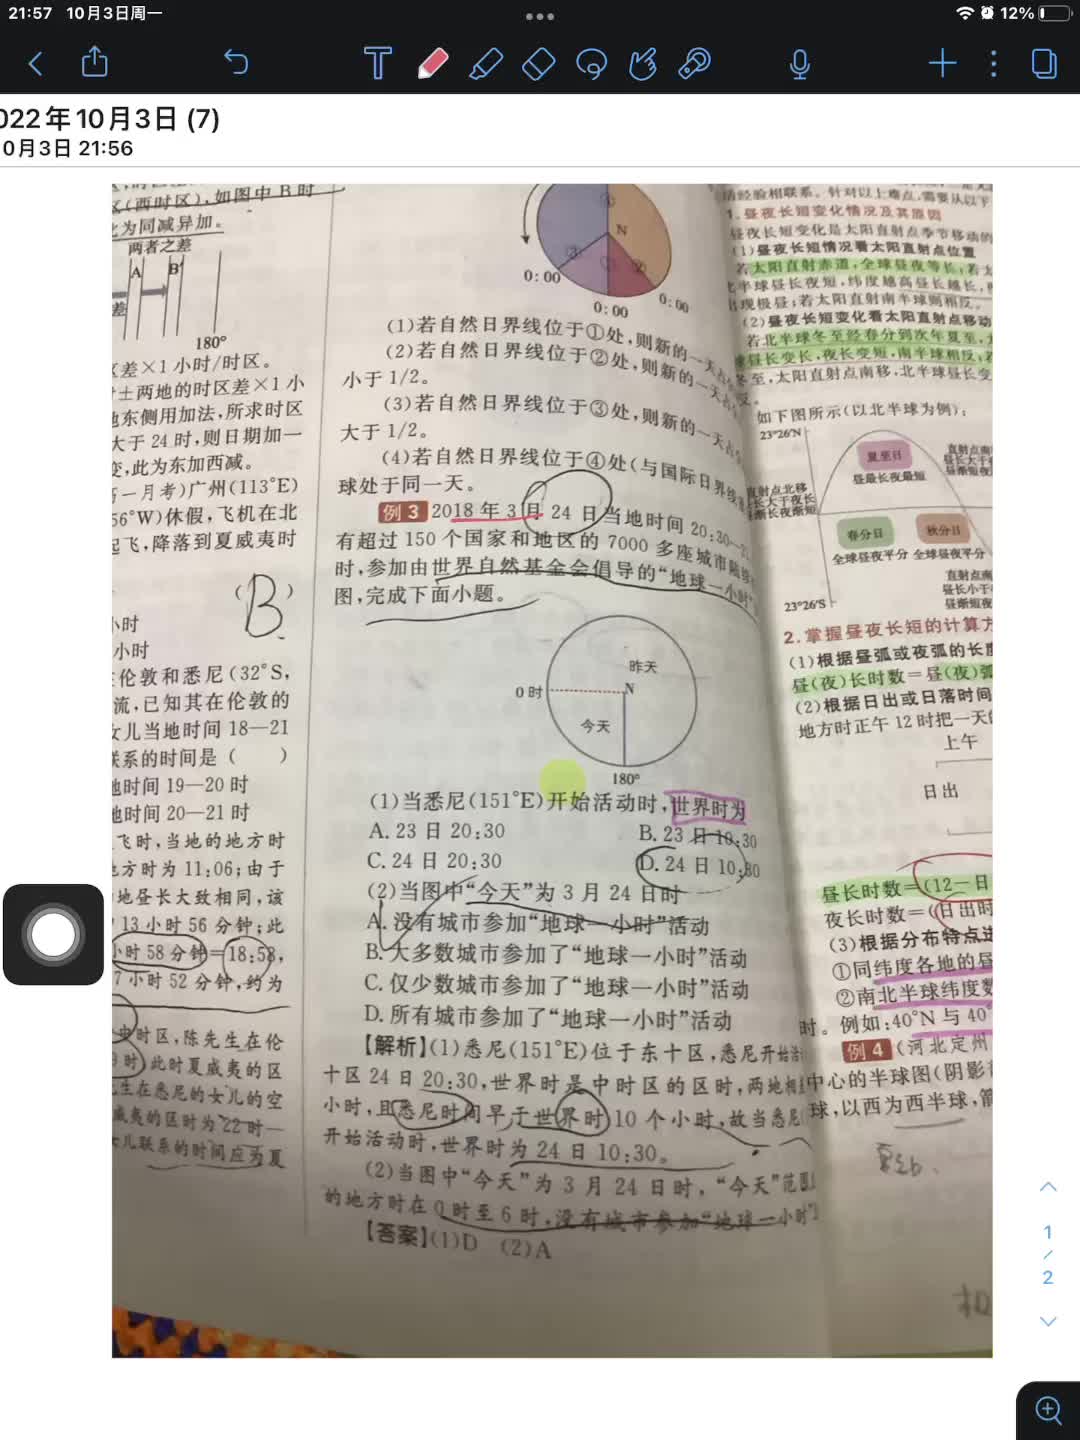 21:57 10月3日周一
12%
022年10月3日 (7)
0月3日 21:56
区(西时区),如图中 B 时
为同减异加。
两者之差
A
B
差
180°
区差×1 小时/时区。
±两地的时区差×1 小
东侧用加法,所求时区
大于 24 时,则日期加一
变,此为东加西减。
一月考)广州(113°E)
56°W)休假,飞机在北
起飞,降落到夏威夷时
( B )
小时
小时
伦敦和悉尼(32°S,
流,已知其在伦敦的
女儿当地时间 18—21
联系的时间是 ( )
地时间 19—20 时
地时间 20—21 时
飞时,当地的地方时
地方时为 11:06;由于
地昼长大致相同,该
13 小时 56 分钟;此
小时 58 分钟=18:58,
7 小时 52 分钟,约为
中时区,陈先生在伦
时)此时夏威夷的区
生在悉尼的女儿的空
威夷的区时为 22 时—
女儿联系的时间应为夏
④
N
③
①
②
0:00
0:00
0:00
(1)若自然日界线位于①处,则新的一天占
(2)若自然日界线位于②处,则新的一天占
小于 1/2。
(3)若自然日界线位于③处,则新的一天占
大于 1/2。
(4)若自然日界线位于④处(与国际日界线
球处于同一天。
例 3 2018 年 3 月 24 日当地时间 20:30—
有超过 150 个国家和地区的 7000 多座城市陆续
时,参加由世界自然基金会倡导的“地球一小时”
图,完成下面小题。
昨天
0 时
N
今天
180°
(1)当悉尼(151°E)开始活动时,世界时为
A. 23 日 20:30
B. 23 日 10:30
C. 24 日 20:30
D. 24 日 10:30
(2)当图中“今天”为 3 月 24 日时
A. 没有城市参加“地球一小时”活动
B. 大多数城市参加了“地球一小时”活动
C. 仅少数城市参加了“地球一小时”活动
D. 所有城市参加了“地球一小时”活动
【解析】(1)悉尼(151°E)位于东十区,悉尼开始活
十区 24 日 20:30,世界时是中时区的区时,两地相差
小时,且悉尼时间早于世界时 10 个小时,故当悉尼
开始活动时,世界时为 24 日 10:30。
(2)当图中“今天”为 3 月 24 日时,“今天”范围
的地方时在 0 时至 6 时,没有城市参加“地球一小时”
【答案】(1)D (2)A
活经验相联系。针对以上难点,需要从以下
1. 昼夜长短变化情况及其原因
昼夜长短变化是太阳直射点季节移动的
(1)昼夜长短情况看太阳直射点位置
若太阳直射赤道,全球昼夜等长;若太
北半球昼长夜短,纬度越高昼长越长,
出现极昼;若太阳直射南半球则相反。
(2)昼夜长短变化看太阳直射点移动
若北半球冬至经春分到次年夏至,
球昼长变长,夜长变短,南半球相反;若
冬至,太阳直射点南移,北半球昼长变
反。
如下图所示(以北半球为例):
23°26′N
夏至日
昼最长夜最短
直射点南
昼长大于
昼渐短夜
直射点北移
昼长大于夜长
昼渐长夜渐短
春分日
秋分日
全球昼夜平分
全球昼夜平分
直射点南
昼长小于
昼渐短夜
23°26′S
2. 掌握昼夜长短的计算方
(1)根据昼弧或夜弧的长度
昼(夜)长时数=昼(夜)弧
(2)根据日出或日落时间
地方时正午 12 时把一天
上午
日出
昼长时数=(12-日
夜长时数=(日出时
(3)根据分布特点进
①同纬度各地的昼
②南北半球纬度数
时。例如:40°N 与 40°
例 4 (河北定州
中心的半球图(阴影
球,以西为西半球,箭
1
2